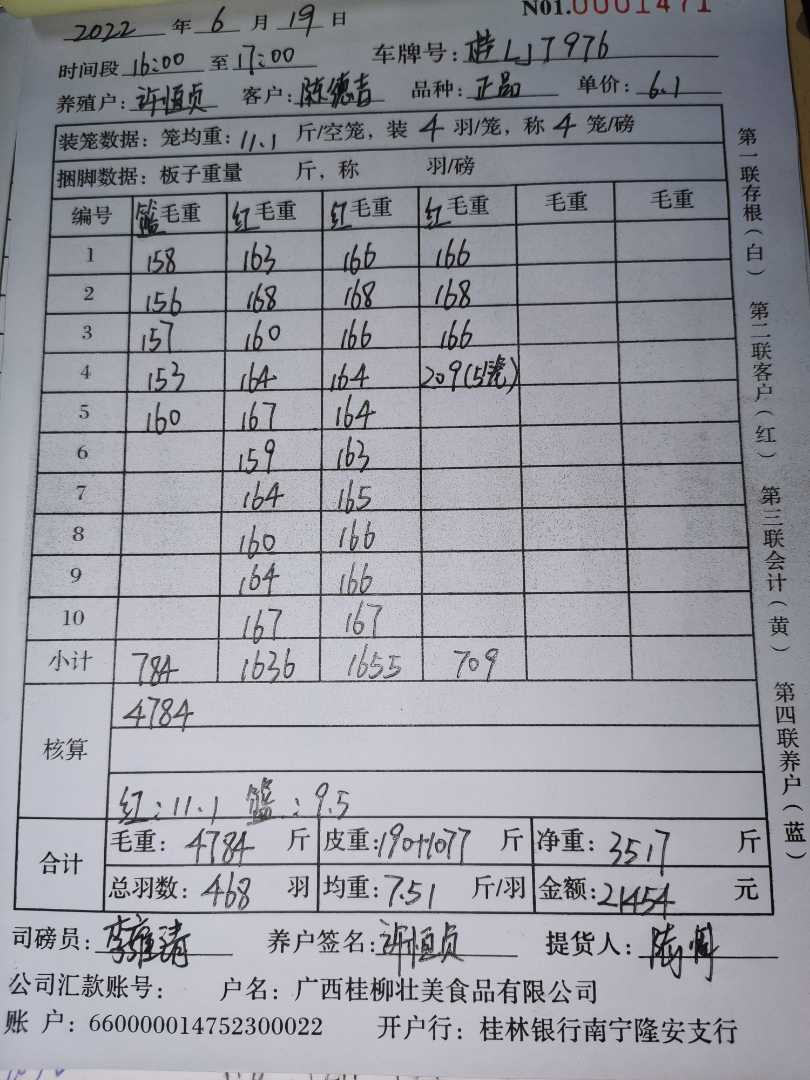 2022 年 6 月 19 日 N01.0001471
时间段 16:00 至 17:00 车牌号: 桂LJ7976
养殖户: 许恒贞 客户: 陈德吉 品种: 正品 单价: 6.1
装笼数据: 笼均重: 11.1 斤/空笼, 装 4 羽/笼, 称 4 笼/磅
捆脚数据: 板子重量 斤, 称 羽/磅
编号 篮毛重 红毛重 红毛重 红毛重 毛重 毛重
1 158 163 166 166
2 156 168 168 168
3 157 160 166 166
4 153 164 164 209(5號)
5 160 167 164
6 159 163
7 164 165
8 160 166
9 164 166
10 167 167
小计 784 1636 1655 709
核算 4784
红: 11.1 篮: 9.5
合计 毛重: 4784 斤 皮重: 190+1077 斤 净重: 3517 斤
总羽数: 468 羽 均重: 7.51 斤/羽 金额: 21454 元
司磅员: 养户签名: 许恒贞 提货人:
公司汇款账号: 户名: 广西桂柳壮美食品有限公司
账 户: 660000014752300022 开户行: 桂林银行南宁隆安支行
第一联存根(白) 第二联客户(红) 第三联会计(黄) 第四联养户(蓝)